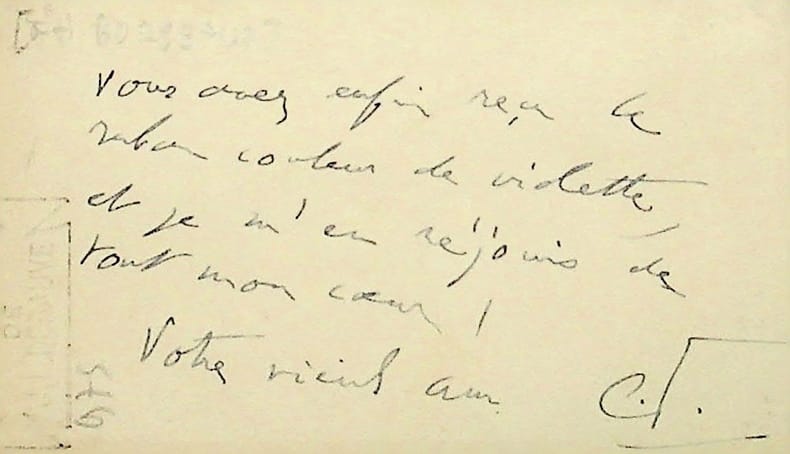 Vous avez enfin reçu le
ruban couleur de violette,
et je m'en réjouis de
tout mon cœur !
Votre vieil ami
C.T.
975